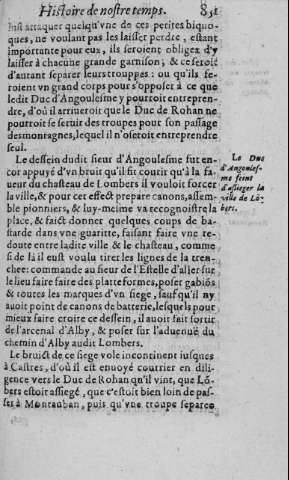 Histoire de nostre temps. 851
just attaquer quelqu'vne de ces petites biquo-
ques, ne voulant pas les laisser perdre, estant
importante pour eux, ils seroient obligez d'y
laisser à chacune grande garnison; & ce seroit
d'autant separer leurs trouppes: ou qu'ils fe-
roient vn grand corps pour s'opposer à ce que
ledit Duc d'Angoulesme y pourroit entrepren-
dre, d'où il arriueroit que le Duc de Rohan ne
pourroit se seruir des troupes pour son passage
des montagnes, lequel il n'oseroit entreprendre
seul.
Le dessein dudit sieur d'Angoulesme fut en-
cor appuyé d'vn bruit qu'il fit courir qu'à la fa-
ueur du chasteau de Lombers il vouloit forcer
la ville, & pour cet effect prepare canons, assem-
ble pionniers, & luy-mesme va recognoistre la
place, & faict donner quelques coups de ba-
starde dans vne guaritte, faisant faire vne re-
doute entre ladite ville & le chasteau, comme
si de là il eust voulu tirer les lignes de la tren-
chee: commande au sieur de l'Estelle d'aller sur
le lieu faire faire des platteformes, poser gabiōs
& toutes les marques d'vn siege, sauf qu'il ny
auoit point de canons de batterie, lesquels pour
mieux faire croire ce dessein, il auoit fait sortir
de l'arcenal d'Alby, & poser sur l'aduenuë du
chemin d'Alby audit Lombers.
Le bruict de ce siege vole incontinent iusques
à Castres, d'où il est enuoyé courrier en dili-
gence vers le Duc de Rohan qu'il vint, que Lō-
bers estoit assiegé, que c'estoit bien loin de pas-
ser à Montauban, puis qu'vne troupe separee
Le Duc
d'Angoules-
me feint
d'assieger la
ville de Lō-
bers.